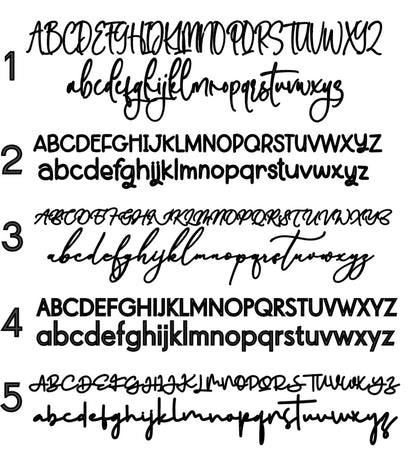 1
ABCDEFGHIJKLMNOPQRSTUVWXYZ
abcdefghijklmnopqrstuvwxyz
2
ABCDEFGHIJKLMNOPQRSTUVWXYZ
abcdefghijklmnopqrstuvwxyz
3
ABCDEFGHIJKLMNOPQRSTUVWXYZ
abcdefghijklmnopqrstuvwxyz
4
ABCDEFGHIJKLMNOPQRSTUVWXYZ
abcdefghijklmnopqrstuvwxyz
5
ABCDEFGHIJKLMNOPQRSTUVWXYZ
abcdefghijklmnopqrstuvwxyz